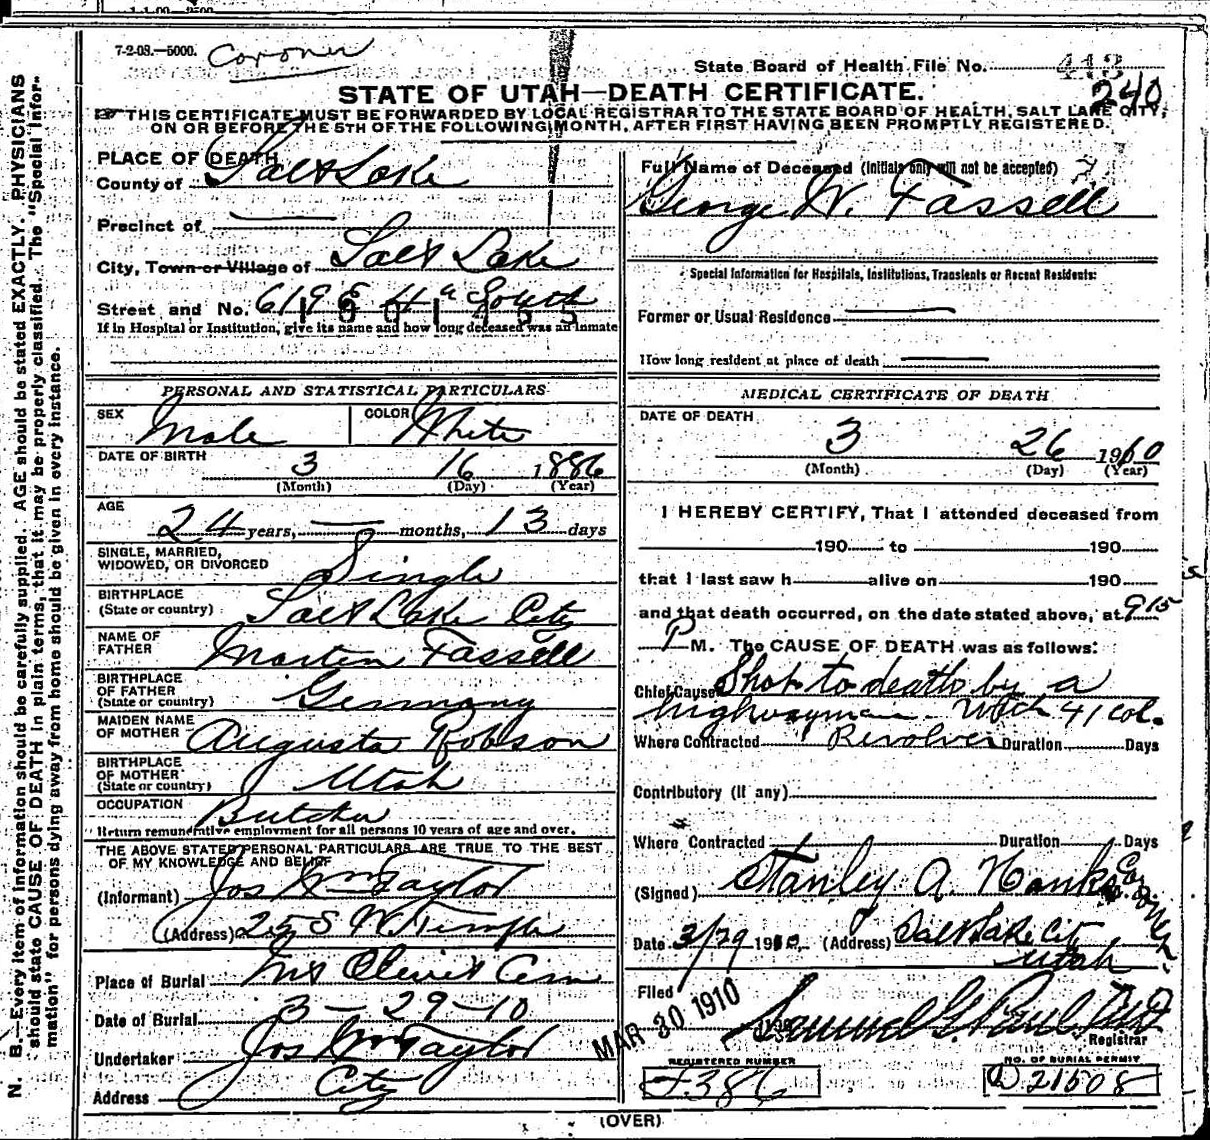 7-2-08.—5000. Coroner
State Board of Health File No. 413
240
STATE OF UTAH—DEATH CERTIFICATE.
THIS CERTIFICATE MUST BE FORWARDED BY LOCAL REGISTRAR TO THE STATE BOARD OF HEALTH, SALT LAKE CITY,
ON OR BEFORE THE 5TH OF THE FOLLOWING MONTH, AFTER FIRST HAVING BEEN PROMPTLY REGISTERED.
PLACE OF DEATH
County of Salt Lake
Precinct of
City, Town or Village of Salt Lake
Street and No. 619 E 4th South
1901455
If in Hospital or Institution, give its name and how long deceased was an inmate
PERSONAL AND STATISTICAL PARTICULARS
SEX Male COLOR White
DATE OF BIRTH 3 16 1886
(Month) (Day) (Year)
AGE
24 years, — months, 13 days
SINGLE, MARRIED,
WIDOWED, OR DIVORCED Single
BIRTHPLACE
(State or country) Salt Lake City
NAME OF
FATHER Martin Fassell
BIRTHPLACE
OF FATHER
(State or country) Germany
MAIDEN NAME
OF MOTHER Augusta Robson
BIRTHPLACE
OF MOTHER
(State or country) Utah
OCCUPATION Butcher
Return remunerative employment for all persons 10 years of age and over.
THE ABOVE STATED PERSONAL PARTICULARS ARE TRUE TO THE BEST
OF MY KNOWLEDGE AND BELIEF
(Informant) Jos Wm Taylor
(Address) 25 S W. Temple
Place of Burial Mt Olivet Cem
Date of Burial 3-29-10
Undertaker Jos Wm Taylor
Address City
Full Name of Deceased (Initials only will not be accepted)
George W. Fassell
Special Information for Hospitals, Institutions, Transients or Recent Residents:
Former or Usual Residence
How long resident at place of death
MEDICAL CERTIFICATE OF DEATH
DATE OF DEATH
3 26 1910
(Month) (Day) (Year)
I HEREBY CERTIFY, That I attended deceased from
190 to 190
that I last saw h alive on 190
and that death occurred, on the date stated above, at 9 15
P M. The CAUSE OF DEATH was as follows:
Chief Cause Shot to death by a
highwayman with 41 col.
Revolver
Where Contracted Duration Days
Contributory (if any)
Where Contracted Duration Days
(Signed) Stanley A. Hanks Coroner
Date 3/29 1910 (Address) Salt Lake City
Utah
Filed MAR 30 1910 Samuel G. Paul
Registrar
REGISTERED NUMBER
NO. OF BURIAL PERMIT
21508
(OVER)
N. B.—Every item of information should be carefully supplied. AGE should be stated EXACTLY. PHYSICIANS
should state CAUSE OF DEATH in plain terms, that it may be properly classified. The "Special Infor-
mation" for persons dying away from home should be given in every instance.